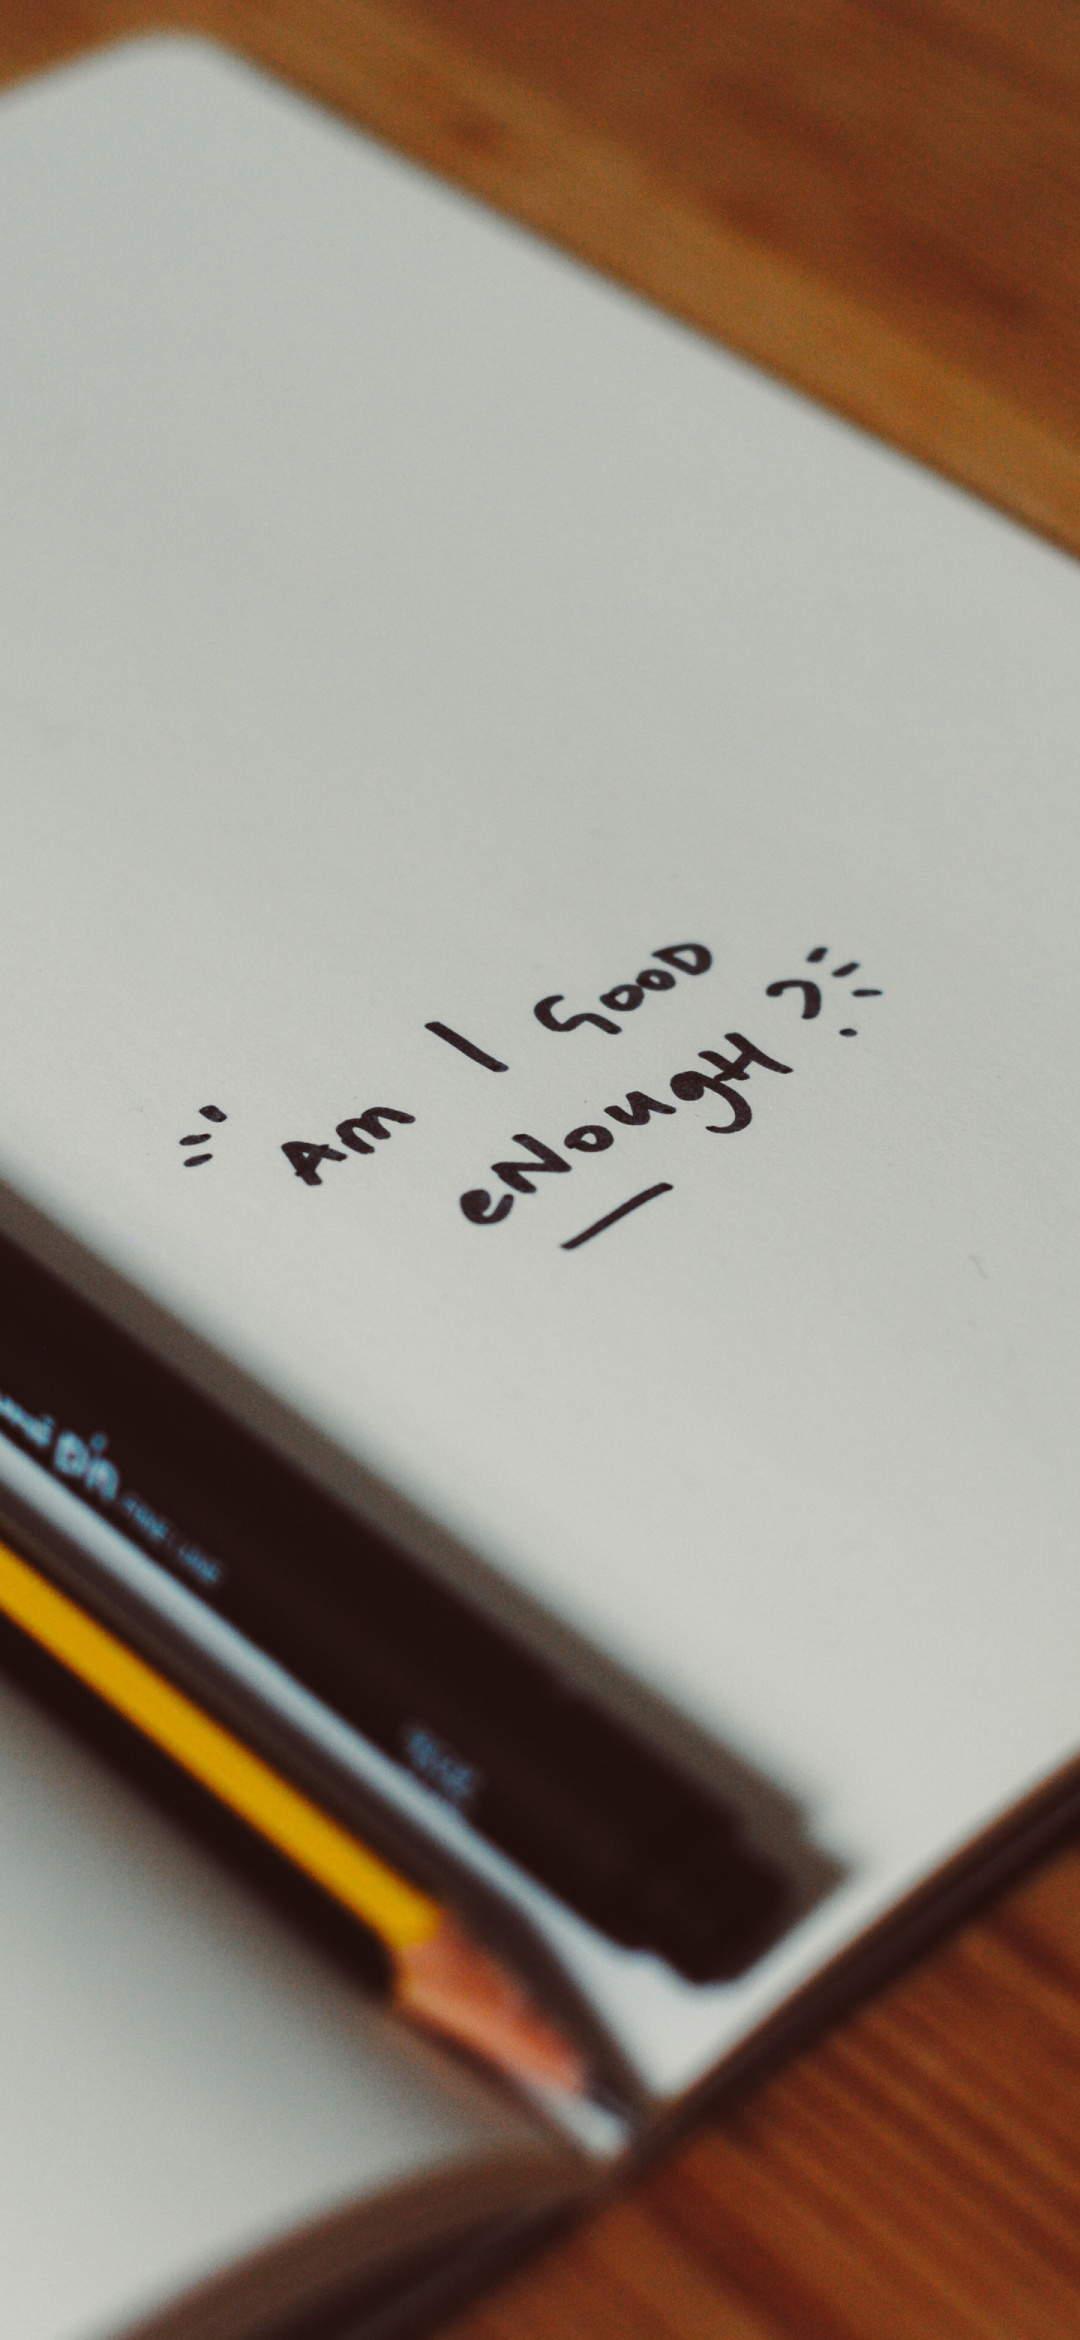 Am I GooD
eNougH ?